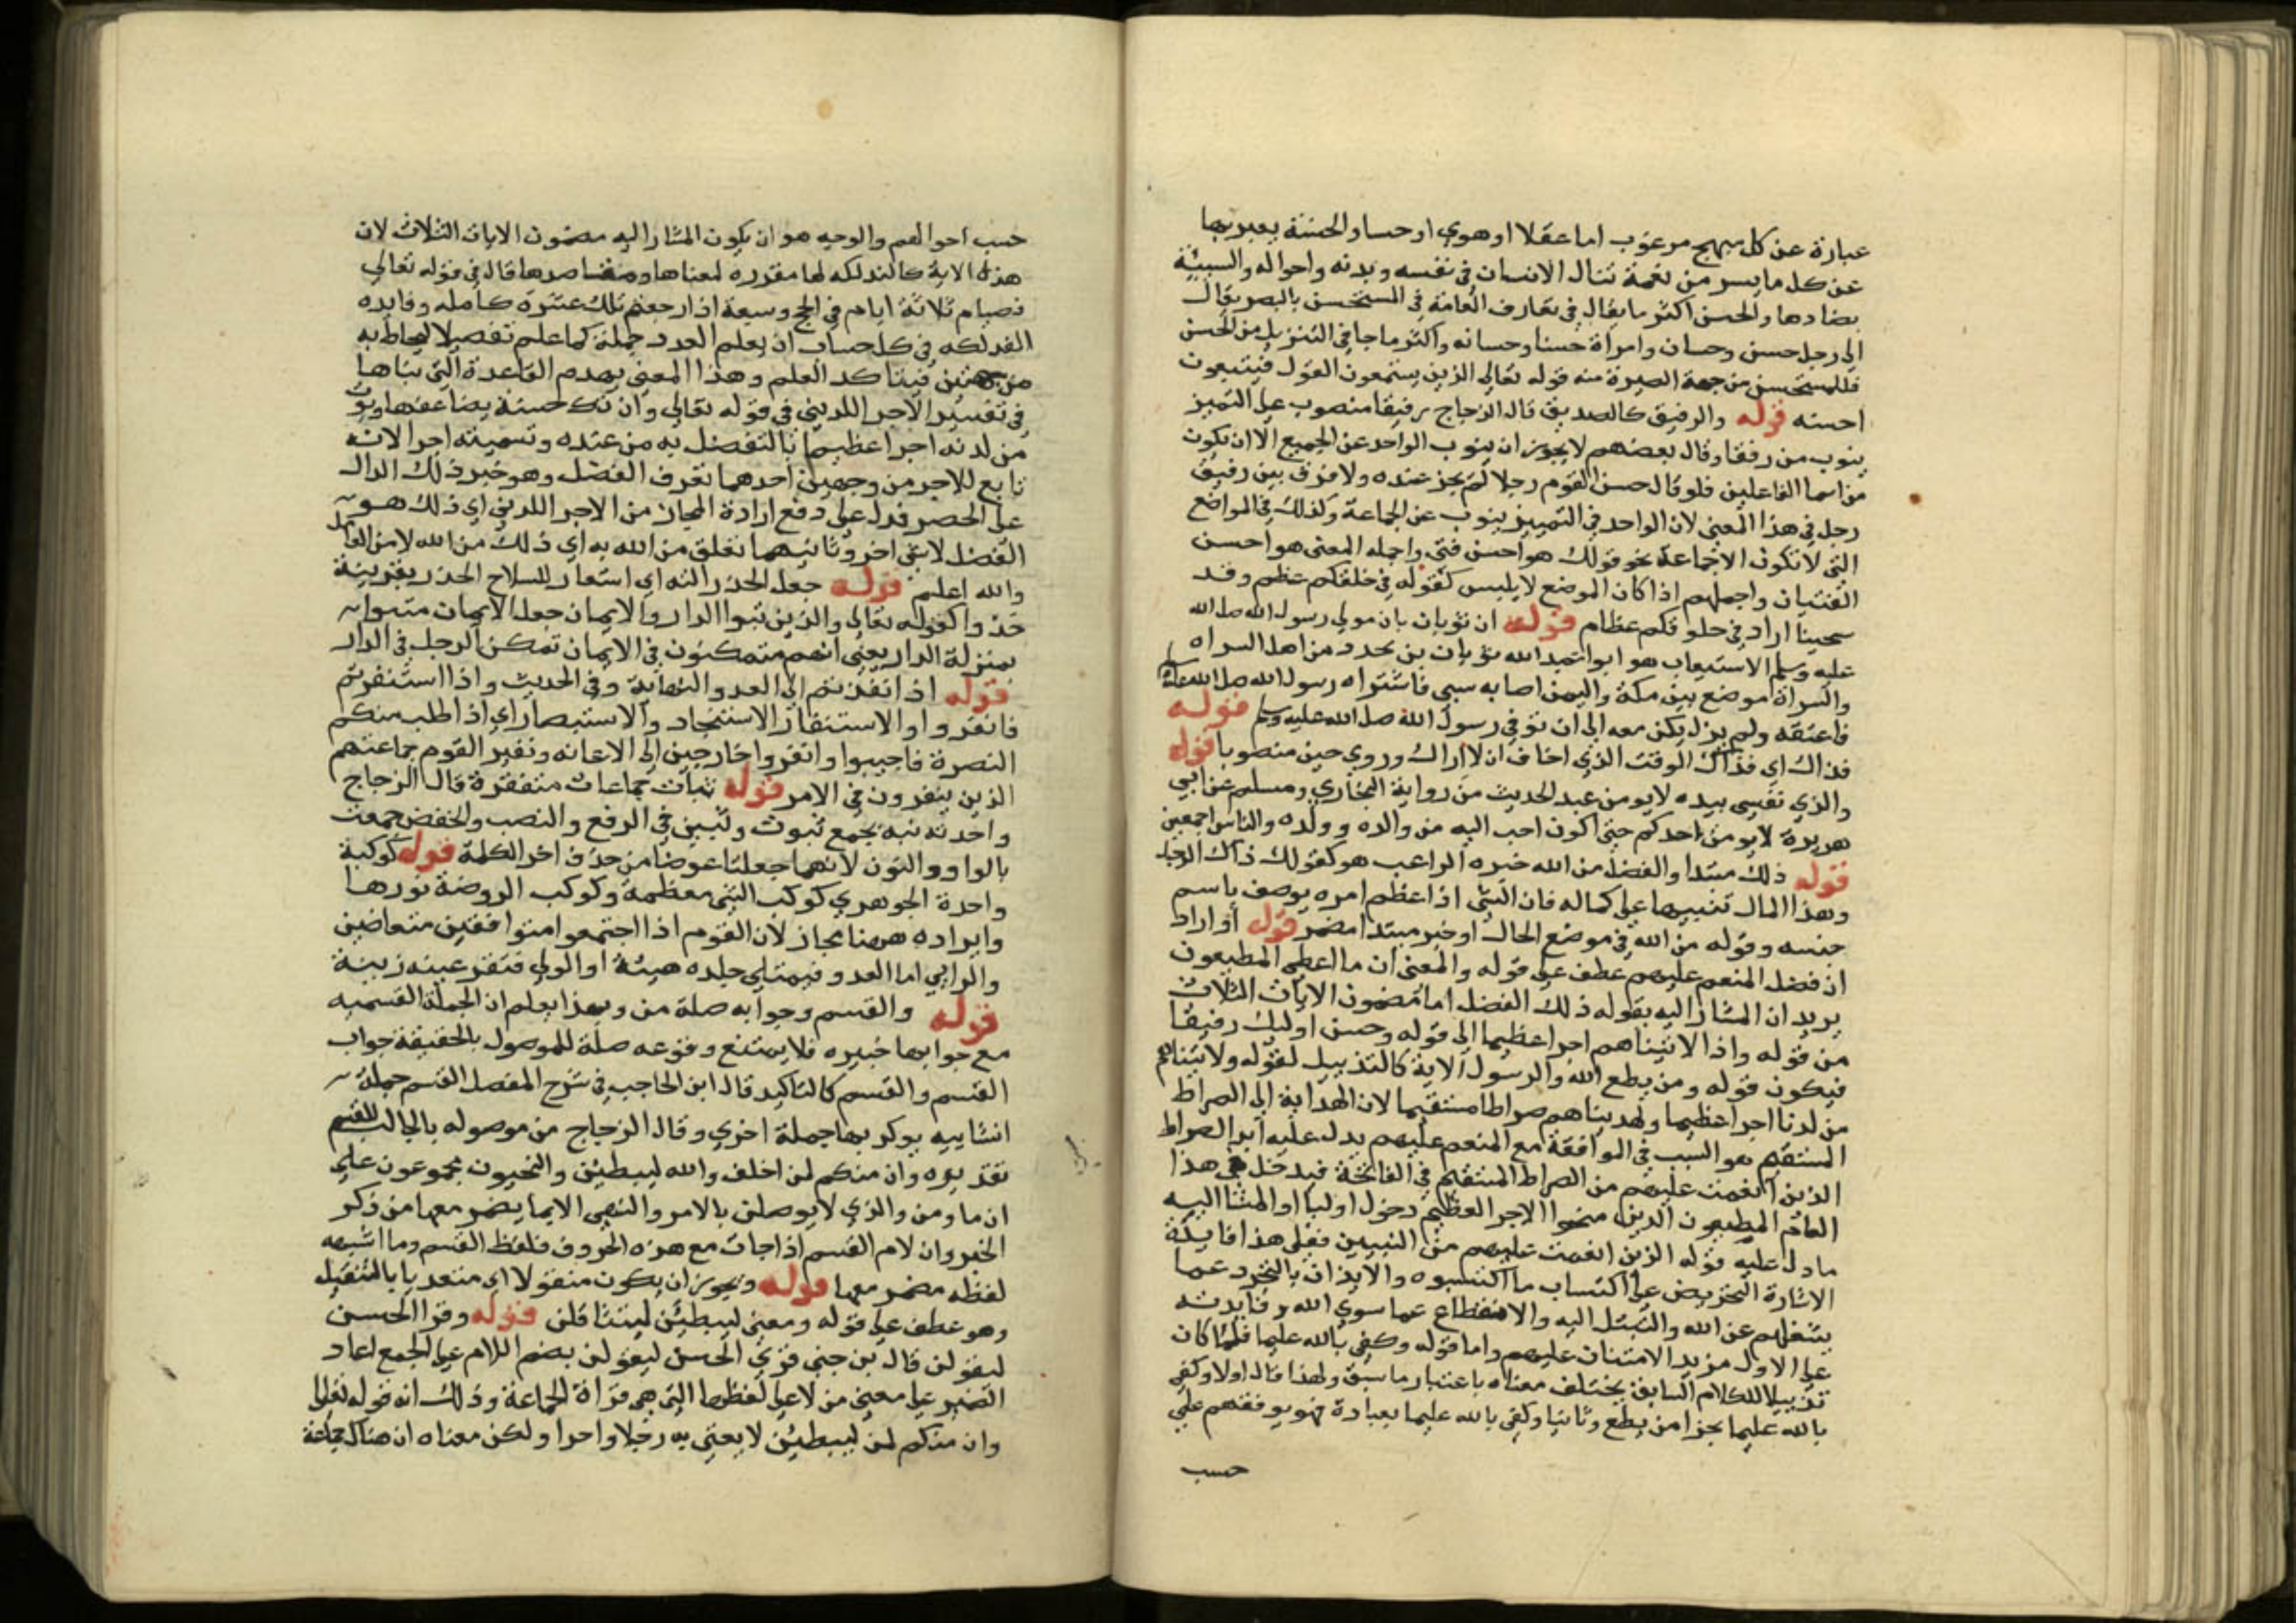 عبارة عن كل مبهج مرغوب اما عقلا او هوي او حسا والحسنة يعبر بها
عن كل ما يسر من نعمة تنال الانسان في نفسه وبدنه واحواله والسيئة
يضادها والحسن اكثر ما يقال في تعارف العامة في المستحسن بالبصر يقال
الي رجل حسن وحسان وامراة حسنا وحسانه واكثر ما جا في التنزيل من الحسن
فللمستحسن من جهة البصيرة منه قوله تعالي الذين يستمعون القول فيتبعون
احسنه قوله والرفيق كالصديق قال الزجاج رفيقا منصوب علي التميز
ينوب من رفقا وقال بعضهم لا يجوز ان ينوب الواحد عن الجميع الا ان يكون
من اسما الفاعلين فلو قال حسن القوم رجلا لم يجز عنده ولا فرق بين رفيق
رجل في هذا المعني لان الواحد في التمييز ينوب عن الجماعة وكذلك في المواضع
التي لا تكون الا جماعة نحو قولك هو احسن فتي واجمله المعني هو احسن
الفتيان واجملهم اذا كان الموضع لا يلبس كقوله في حلقكم عظم وقد
سحينا اراد في حلوقكم عظام قوله ان ثوبان بان مولي رسول الله صلي الله
عليه وسلم الاستيعاب هو ابو عبد الله ثوبان بن بجدد من اهل السراه
والسراة موضع بين مكة واليمن اصابه سبي فاشتراه رسول الله صلي الله عليه
فاعتقه ولم يزل يكن معه الي ان توفي رسول الله صلي الله عليه وسلم قوله
فذاك اي فذاك الوقت الذي اخاف ان لا اراك وروي حين منصوبا قوله
والذي نفسي بيده لا يومن عبد الحديث من رواية البخاري ومسلم عن ابي
هريرة لا يومن احدكم حتي اكون احب اليه من والده وولده والناس اجمعين
قوله ذلك مبتدا والفضل من الله خبره الراغب هو كقولك ذاك الرجل
وهذا المال تنبيها علي كماله فان الشي اذا عظم امره يوصف باسم
جنسه وقوله من الله في موضع الحال او خبر مبتدا مضمر قوله او اراد
ان فضل المنعم عليهم عطف علي قوله والمعني ان ما اعطي المطيعون
يريد ان المشار اليه بقوله ذلك الفضل اما مضمون الايات الثلاث
من قوله واذا لاتيناهم اجرا عظيما الي قوله وحسن اوليك رفيقا
فيكون قوله ومن يطع الله والرسول الاية كالتذييل لقوله ولاتيناهم
من لدنا اجرا عظيما ولهديناهم صراطا مستقيما لان الهداية الي الصراط
المستقيم هو السبب في الموافقة مع المنعم عليهم يدل عليه ابدا الصراط
الذين انعمت عليهم من الصراط المستقيم في الفاتحة فيدخل في هذا
العام المطيعون الذين منحوا الاجر العظيم دخول اوليا او المشا اليه
ما دل عليه قوله الذين انعمت عليهم من النبيين فعلي هذا فايدة
الاشارة التحريض علي اكتساب ما اكتسبوه والايذان بالتجرد عما
يشغلهم عن الله والتبتل اليه والانقطاع عما سوي الله وفايدته
علي الاول مزيد الامتنان عليهم واما قوله وكفي بالله عليما فلما كان
تذييلا للكلام السابق يختلف معناه باعتبار ما سبق ولهذا قال اولا وكفي
بالله عليما بجزا من يطع وثانيا وكفي بالله عليما بعبادة فهو يوفقهم علي
حسب
حسب احوالهم والوجه هو ان يكون المشار اليه مضمون الايات الثلاث لان
هذه الاية كالفذلكه لها مقدره لمعناها ومقاصدها قال في قوله تعالي
فصيام ثلاثة ايام في الحج وسبعة اذا رجعتم تلك عشرة كامله وفايده
الفذلكه في كل حساب ان يعلم العدد جملة كما علم تفصيلا ليحاط به
من جهتين فيتاكد العلم وهذا المعني يهدم القاعدة التي بناها
في تفسير الاجر اللدني في قوله تعالي وان تك حسنة يضاعفها ويوت
من لدنه اجرا عظيما بالتفضل به من عنده وتسميته اجرا لانه
تابع للاجر من وجهين احدهما تعرف الفضل وهو خبر ذلك الدال
علي الحصر فدل علي دفع ارادة المجاز من الاجر اللدني اي ذلك هو
الفضل لا شي اخر وثانيهما تعلق من الله به اي ذلك من الله لا من العمل
والله اعلم قوله جعل الحذر الته اي استعار للسلاح الحذر بقرينة
خذوا كقوله تعالي والذين تبوا الدار والايمان جعل الايمان متبوا
بمنزلة الدار يعني انهم متمكنون في الايمان تمكن الرجل في الدار
قوله اذا نفذتم الي العدو النهاية وفي الحديث واذا استنفرتم
فانفروا والاستنفار الاستنجاد والاستبصار اي اذا طلب منكم
النصرة فاجيبوا وانفروا خارجين الي الاعانه ونفير القوم جماعتهم
الذين ينفرون في الامر قوله ثبات جماعات متفرقة قال الزجاج
واحدته ثبة يجمع ثبوت وثبين في الرفع والنصب والخفض جمعت
بالواو والنون لانهما جعلتا عوضا من حذف اخر الكلمة قوله كوكبة
واحدة الجوهري كوكب الشي معظمه وكوكب الروضة نورها
وايراده ههنا مجاز لان القوم اذا اجتمعوا متوافقين متعاضين
والرايي اما العدو فيمتلي جلده هيئة او الولي فتقر عينه زينة
قوله والقسم وجوابه صلة من وبهذا يعلم ان الجملة القسميه
مع جوابها خبره فلا يمتنع وقوعه صلة للموصول بالحقيقة جواب
القسم والقسم كالتاكيد قال ابن الحاجب في شرح المفصل القسم جملة
انشاييه يوكد بها جملة اخري وقال الزجاج من موصوله بالجالب للقسم
تقديره وان منكم لمن احلف والله ليبطين والنحيون مجموعون علي
ان ما ومن والذي لا يوصلن بالامر والنهي الا بما يضمر معها من ذكر
الخبر وان لام القسم اذا جات مع هذه الحروف فلفظ القسم وما اشبهه
لفظه مضمر معها قوله ويجوز ان يكون منقولا اي متعديا بالتثقيل
وهو عطف علي قوله ومعني ليبطين ليتثاقلن قوله وقرا الحسن
ليقولن قال بن جني قري الحسن ليقولن بضم اللام علي الجمع اعاد
الضمير علي معني من لا علي لفظها التي هي قراة الجماعة وذلك انه قوله تعالي
وان منكم لمن ليبطين لا يعني به رجلا واحدا ولكن معناه ان هناك جماعة